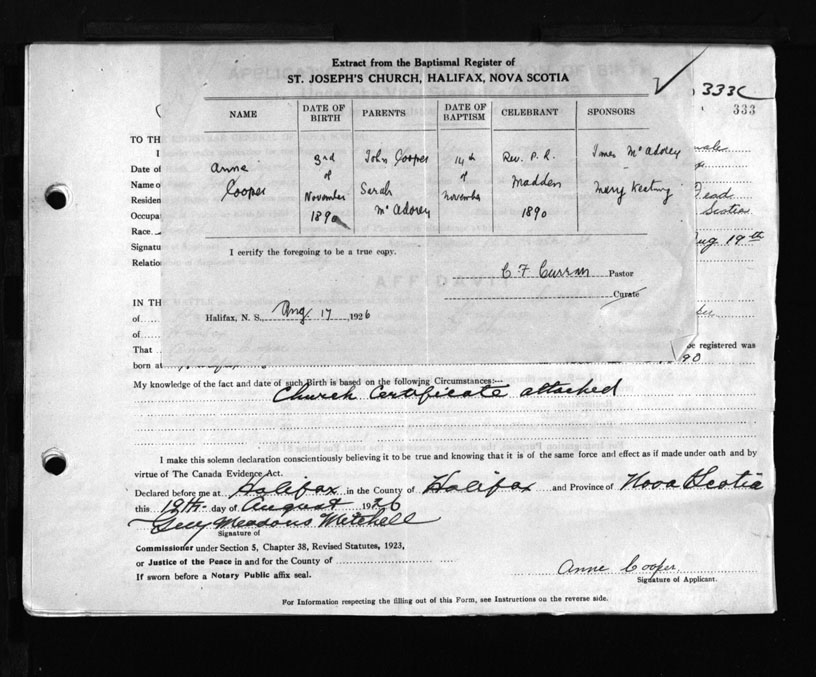 Extract from the Baptismal Register of
ST. JOSEPH'S CHURCH, HALIFAX, NOVA SCOTIA
333
333
NAME DATE OF BIRTH PARENTS DATE OF BAPTISM CELEBRANT SPONSORS
Anne Cooper 3rd of November 1890 John Cooper Sarah McAdorey 14th of November Rev. P. R. Madden 1890 James McAdorey Mary Keating
I certify the foregoing to be a true copy.
C F Curran Pastor
Curate
Halifax, N. S., Aug 17 1926
TO TH
I
Date of
Name o
Residen
Occupa
Race
Signatu
Relatio
Scotia
Aug 19th
AFFIDAVIT
IN TH
of
of
That be registered was
born at 90
My knowledge of the fact and date of such Birth is based on the following Circumstances:—
Church Certificate attached
I make this solemn declaration conscientiously believing it to be true and knowing that it is of the same force and effect as if made under oath and by
virtue of The Canada Evidence Act.
Declared before me at Halifax in the County of Halifax and Province of Nova Scotia
this 19th day of August 1926
Guy Meadows Mitchell
Signature of
Commissioner under Section 5, Chapter 38, Revised Statutes, 1923,
or Justice of the Peace in and for the County of
If sworn before a Notary Public affix seal.
Anne Cooper
Signature of Applicant.
For Information respecting the filling out of this Form, see Instructions on the reverse side.